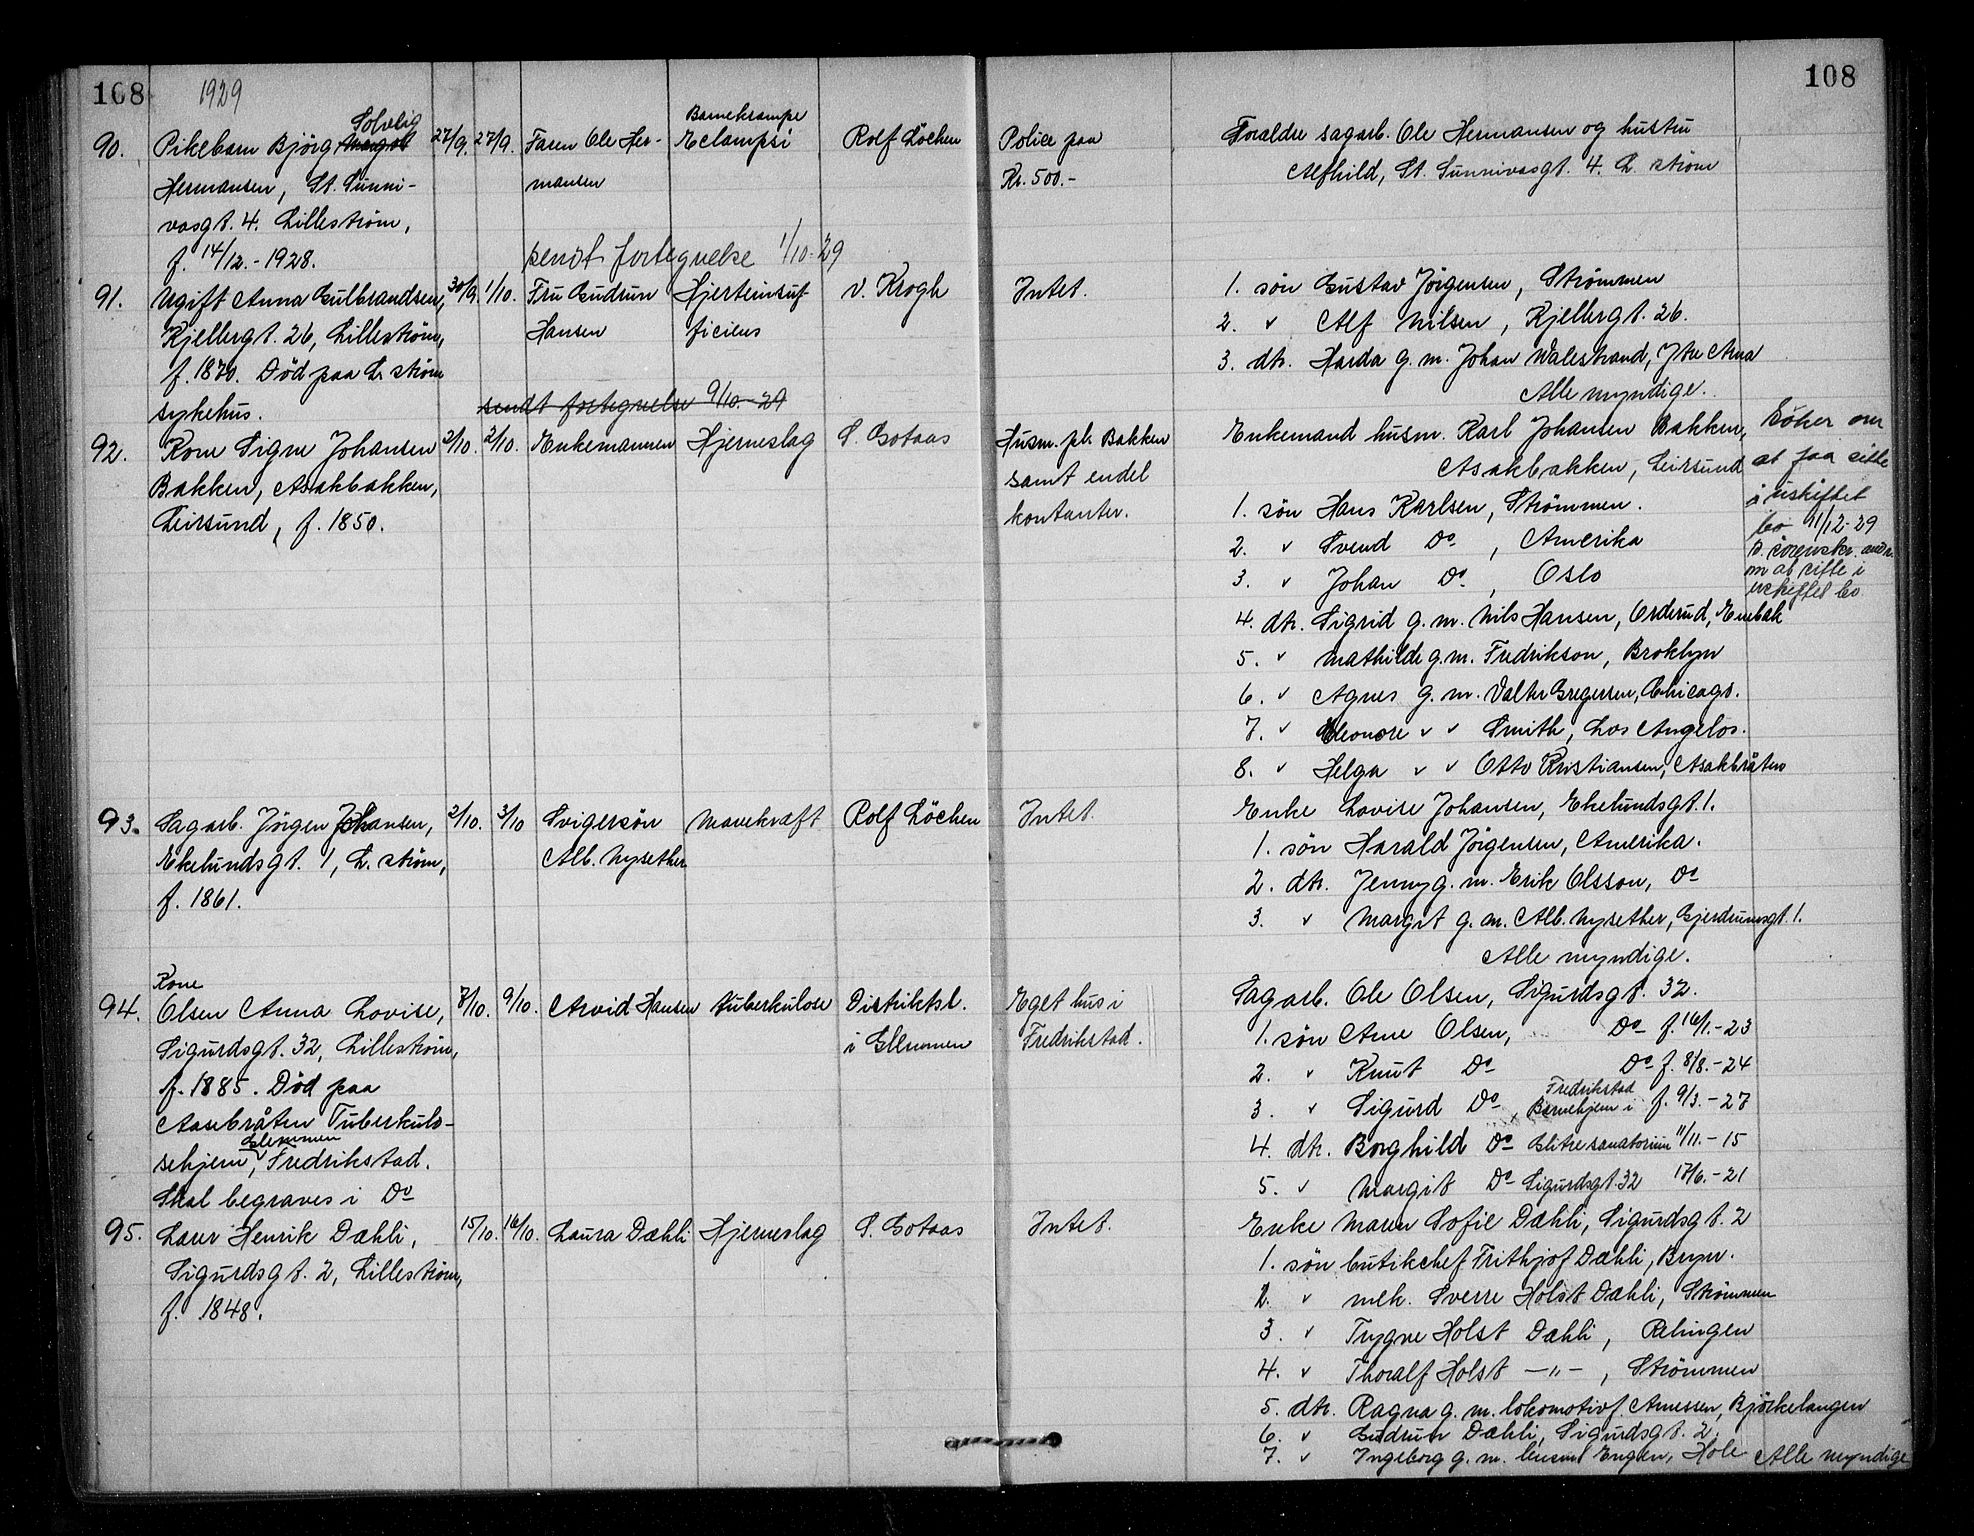 108 1929 108
Solveig
Barnekrampe
90. Pikebarn Bjørg Margot 27/9. 27/9. Faren Ole Her- Eclampsi Rolf Löchen Police paa Foraldre sagarb. Ole Hermansen og hustru
Hermansen, St. Sunni- mansen Kr. 500.- Alfhild, St. Sunnivasgt. 4. L. strøm
vasgt. 4. Lillestrøm,
f. 14/12.-1928. sendt fortegnelse 1/10-29
91. Ugift Anna Gulbrandsen, 30/9. 1/10. Fru Gudrun Hjerteinsuf- v. Krogh Intet. 1. søn Gustav Jørgensen, Strømmen
Kjellergt. 26, Lillestrøm, Hansen ficiens 2. v Alf Nilsen, Kjellergt. 26.
f. 1870. Död paa L. strøm 3. dtr. Harda g. m. Johan Walestrand, Ytre Arna
sykehus. sendt fortegnelse 9/10.-29 Alle myndige.
92. Kone Signe Johansen 2/10. 2/10. Enkemannen Hjerneslag S. Gotaas Husm. pl. Bakken Enkemand husm. Karl Johansen Bakken, Söker om
Bakken, Asakbakken, samt endel Asakbakken, Leirsund at faa sitte
Leirsund, f. 1850. kontanter. 1. søn Hans Karlsen, Strømmen. i uskiftet
2. v Svend Do , Amerika bo 11/12-29
3. v Johan Do , Oslo om at sitte i
uskiftet bo
4. dtr. Sigrid g. m. Nils Hansen, Orderud, Enebak
5. v Mathilde g. m. Fredrikson, Broklyn
6. v Agnes g. m. Valter Gregersen, Chicago.
7. v Eleonore v v Smith, Los Angelos.
8. v Helga v v Otto Kristiansen, Asakbråten
93. Sagarb. Jørgen Johansen, 2/10. 3/10 Svigersön Mavekræft Rolf Löchen Intet. Enke Lovise Johansen, Ekelundsgt. 1.
Ekelundsgt. 1, L. strøm, Alb. Nysether 1. søn Harald Jørgensen, Amerika.
f. 1861. 2. dtr. Jenny g. m. Erik Olsson, Do
3. v Margit g. m. Alb. Nysether, Gjerdrumsgt. 1.
Alle myndige.
Kone
94. Olsen Anna Lovise, 8/10. 9/10. Arvid Hansen Tuberkulose Distriktsl. Eget hus i Sagarb. Ole Olsen, Sigurdsgt. 32.
Sigurdsgt. 32, Lillestrøm, i Glemmen Fredrikstad. 1. søn Arne Olsen, Do f. 16/1.-23
f. 1885. Död paa 2. v Knut Do Do f. 8/8.-24
Fredrikstad
Aasebråten Tuberkulo- 3. v Sigurd Do , Barnehjem i f. 9/3.-27
Glemmen
sehjem, Fredrikstad. 4. dtr. Borghild Do Glitre sanatorium 11/11.-15
Skal begraves i Do 5. v Margit Do Sigurdsgt. 32 17/6.-21
95. Larer Henrik Dæhli, 15/10. 16/10. Laura Dæhli Hjerneslag S. Gotaas Intet. Enke Maren Sofie Dæhli, Sigurdsgt. 2
Sigurdsgt. 2, Lillestrøm, 1. søn butikchef Frithjof Dæhli, Bryn.
f. 1848. 2. v mek. Sverre Holst Dæhli, Strømmen
3. v Trygve Holst Dæhli, Relingen
4. v Thoralf Holst —"— , Strømmen
5. dtr. Ragna g. m. lokomotivf. Arnessen, Bjørkelangen
6. v Gudrun Dæhli, Sigurdsgt. 2.
7. v Ingeborg g. m. lensm. Engen, Hole Alle myndige